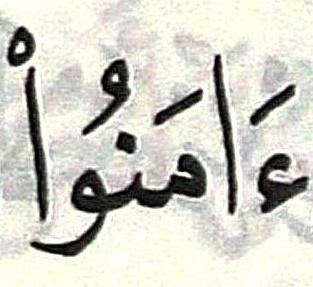 ءَامَنُوا۟